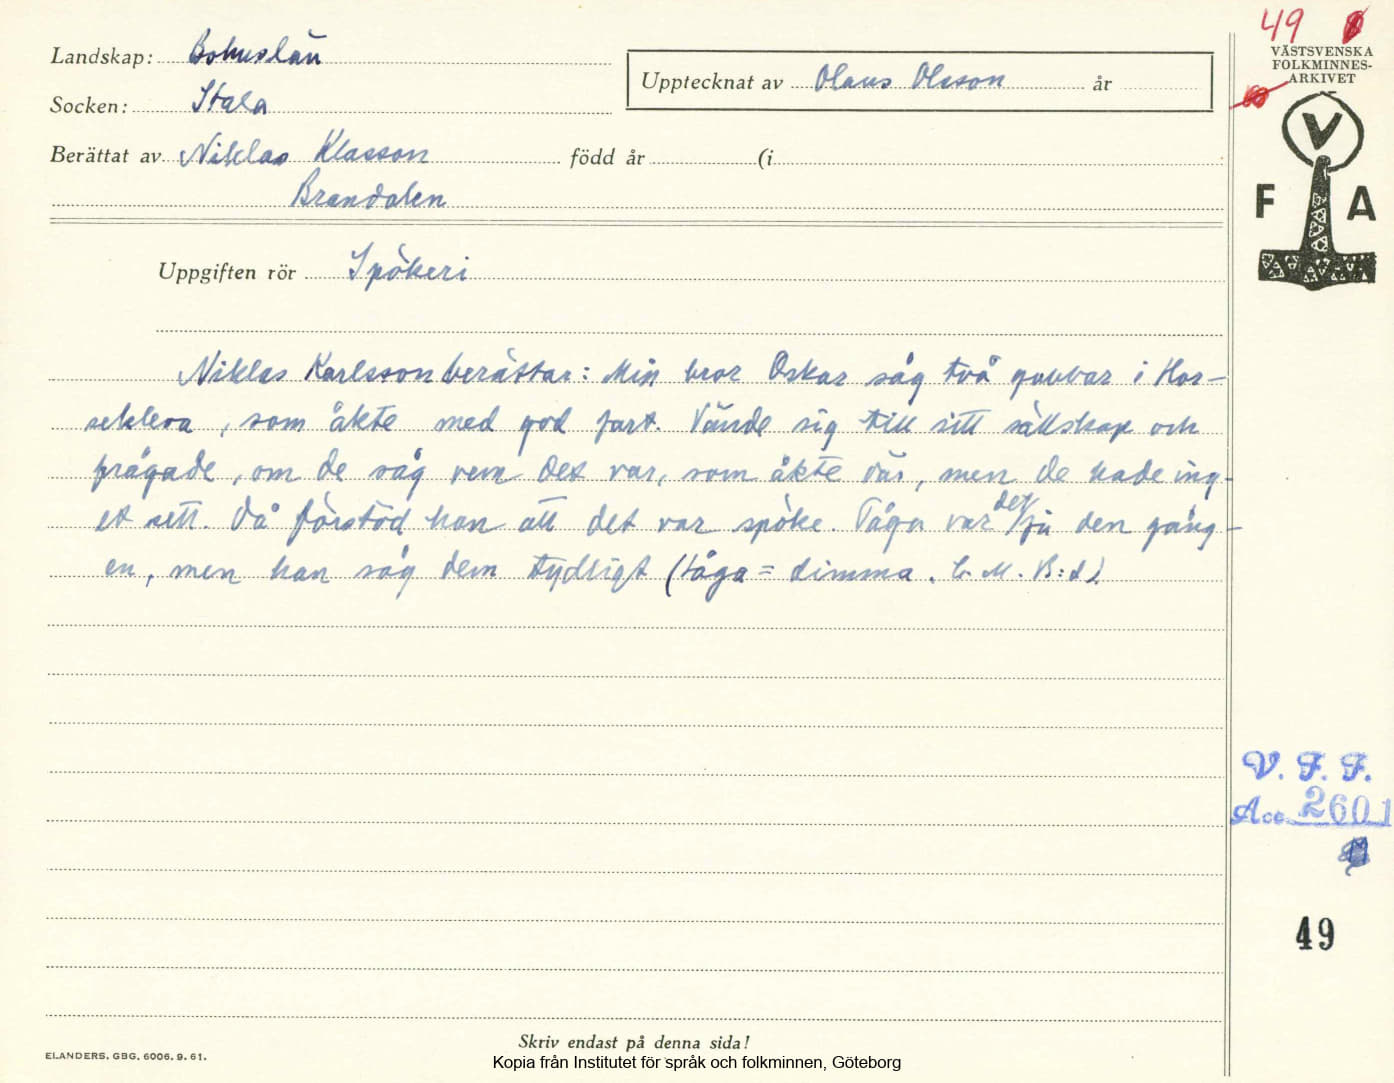 49
VÄSTSVENSKA
FOLKMINNES-
ARKIVET
V
F A
Landskap: Bohuslän
Socken: Stala
Upptecknat av Olaus Olsson år
Berättat av Niklas Klasson född år (i
Brandalen
Uppgiften rör Spökeri
Niklas Karlsson berättar: Min bror Oskar såg två gubbar i Hor-
sekleva, som åkte med god fart. Vände sig till sitt sällskap och
frågade, om de såg vem det var, som åkte där, men de hade ing-
et sett. Då förstod han att det var spöke. Tåga var det ju den gång-
en, men han såg dem tydligt (tåga = dimma. C. M. B:d)
V. F. F.
Acc. 2601
49
Skriv endast på denna sida!
ELANDERS, GBG, 6006. 9. 61.
Kopia från Institutet för språk och folkminnen, Göteborg